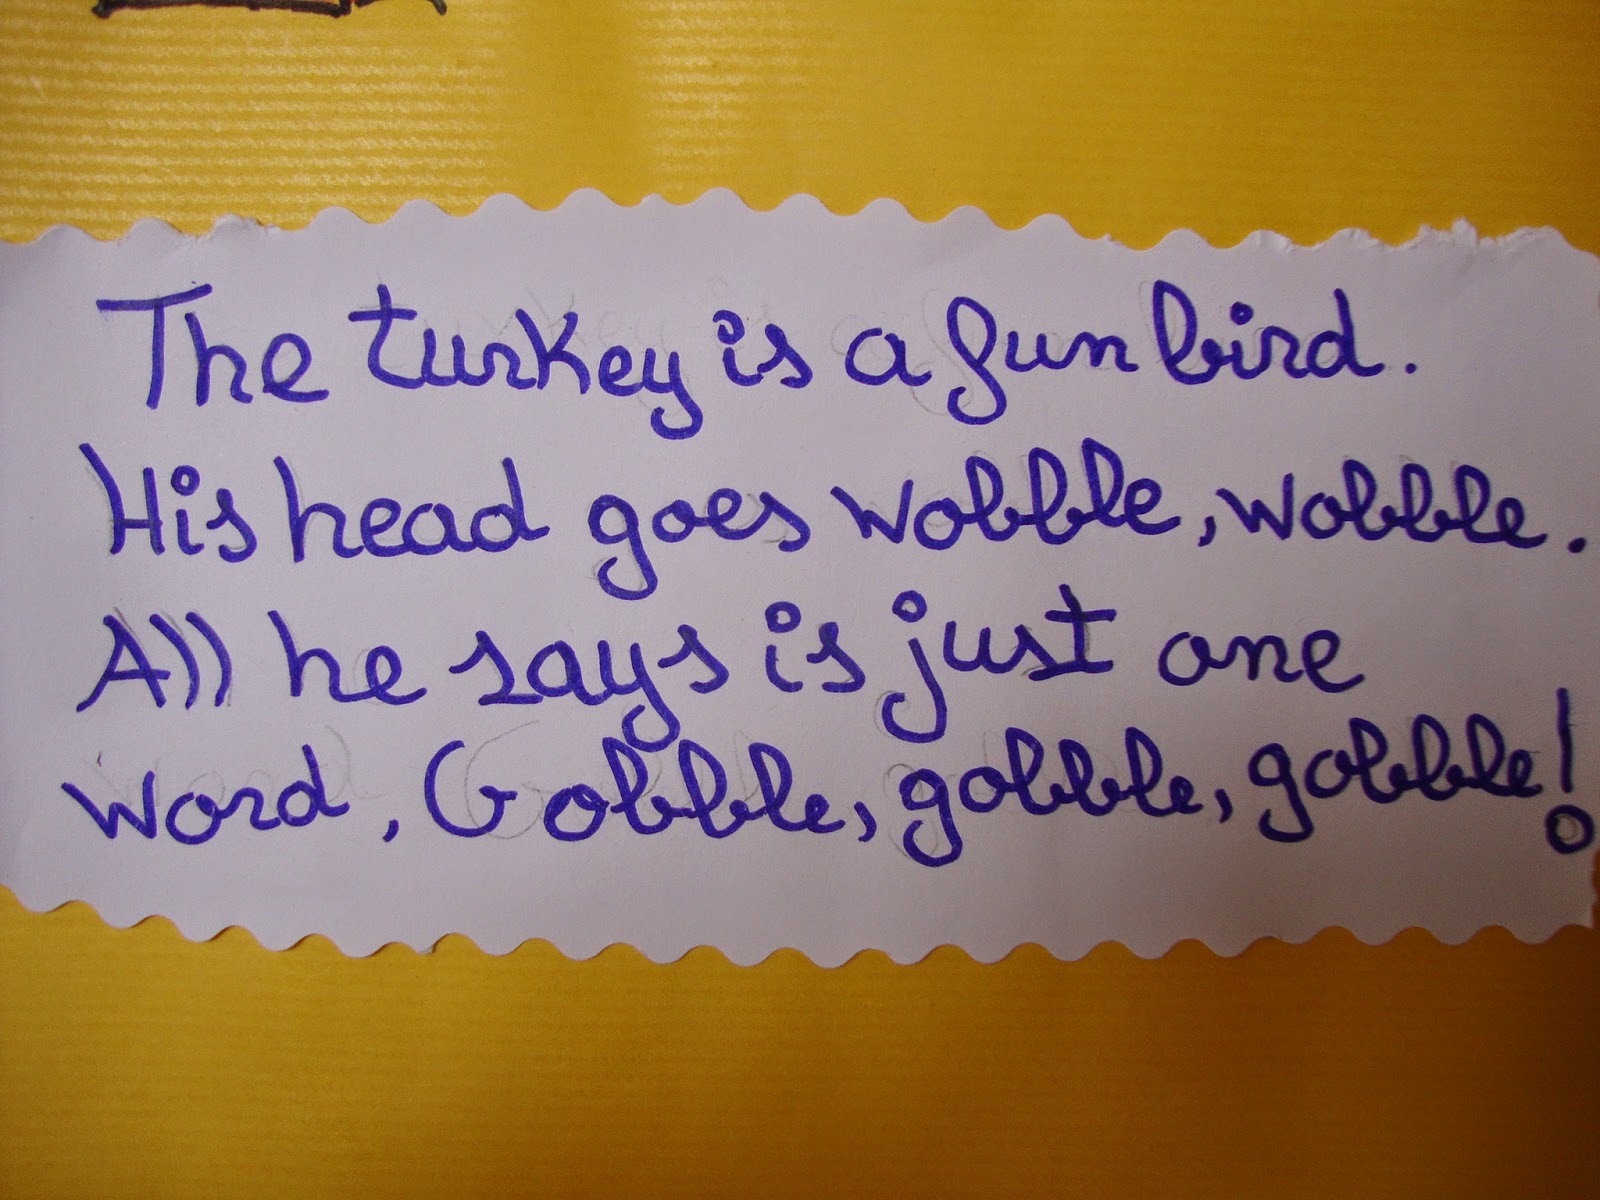 The turkey is a fun bird.
His head goes wobble, wobble.
All he says is just one
word, Gobble, gobble, gobble!